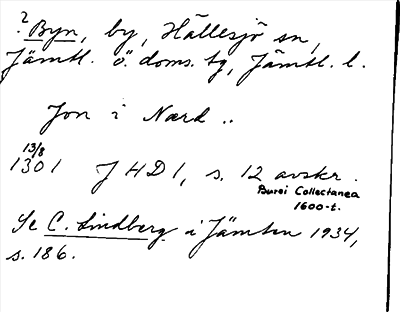 ? Byn, by, Hällesjö sn,
Jämtl. ö. doms. tg, Jämtl. l.
Jon i Nærd ..
13/8
1301 JHD1, s. 12 avskr.
Burei Collectanea
1600-t.
Se C. Lindberg i Jämten 1934,
s. 186.